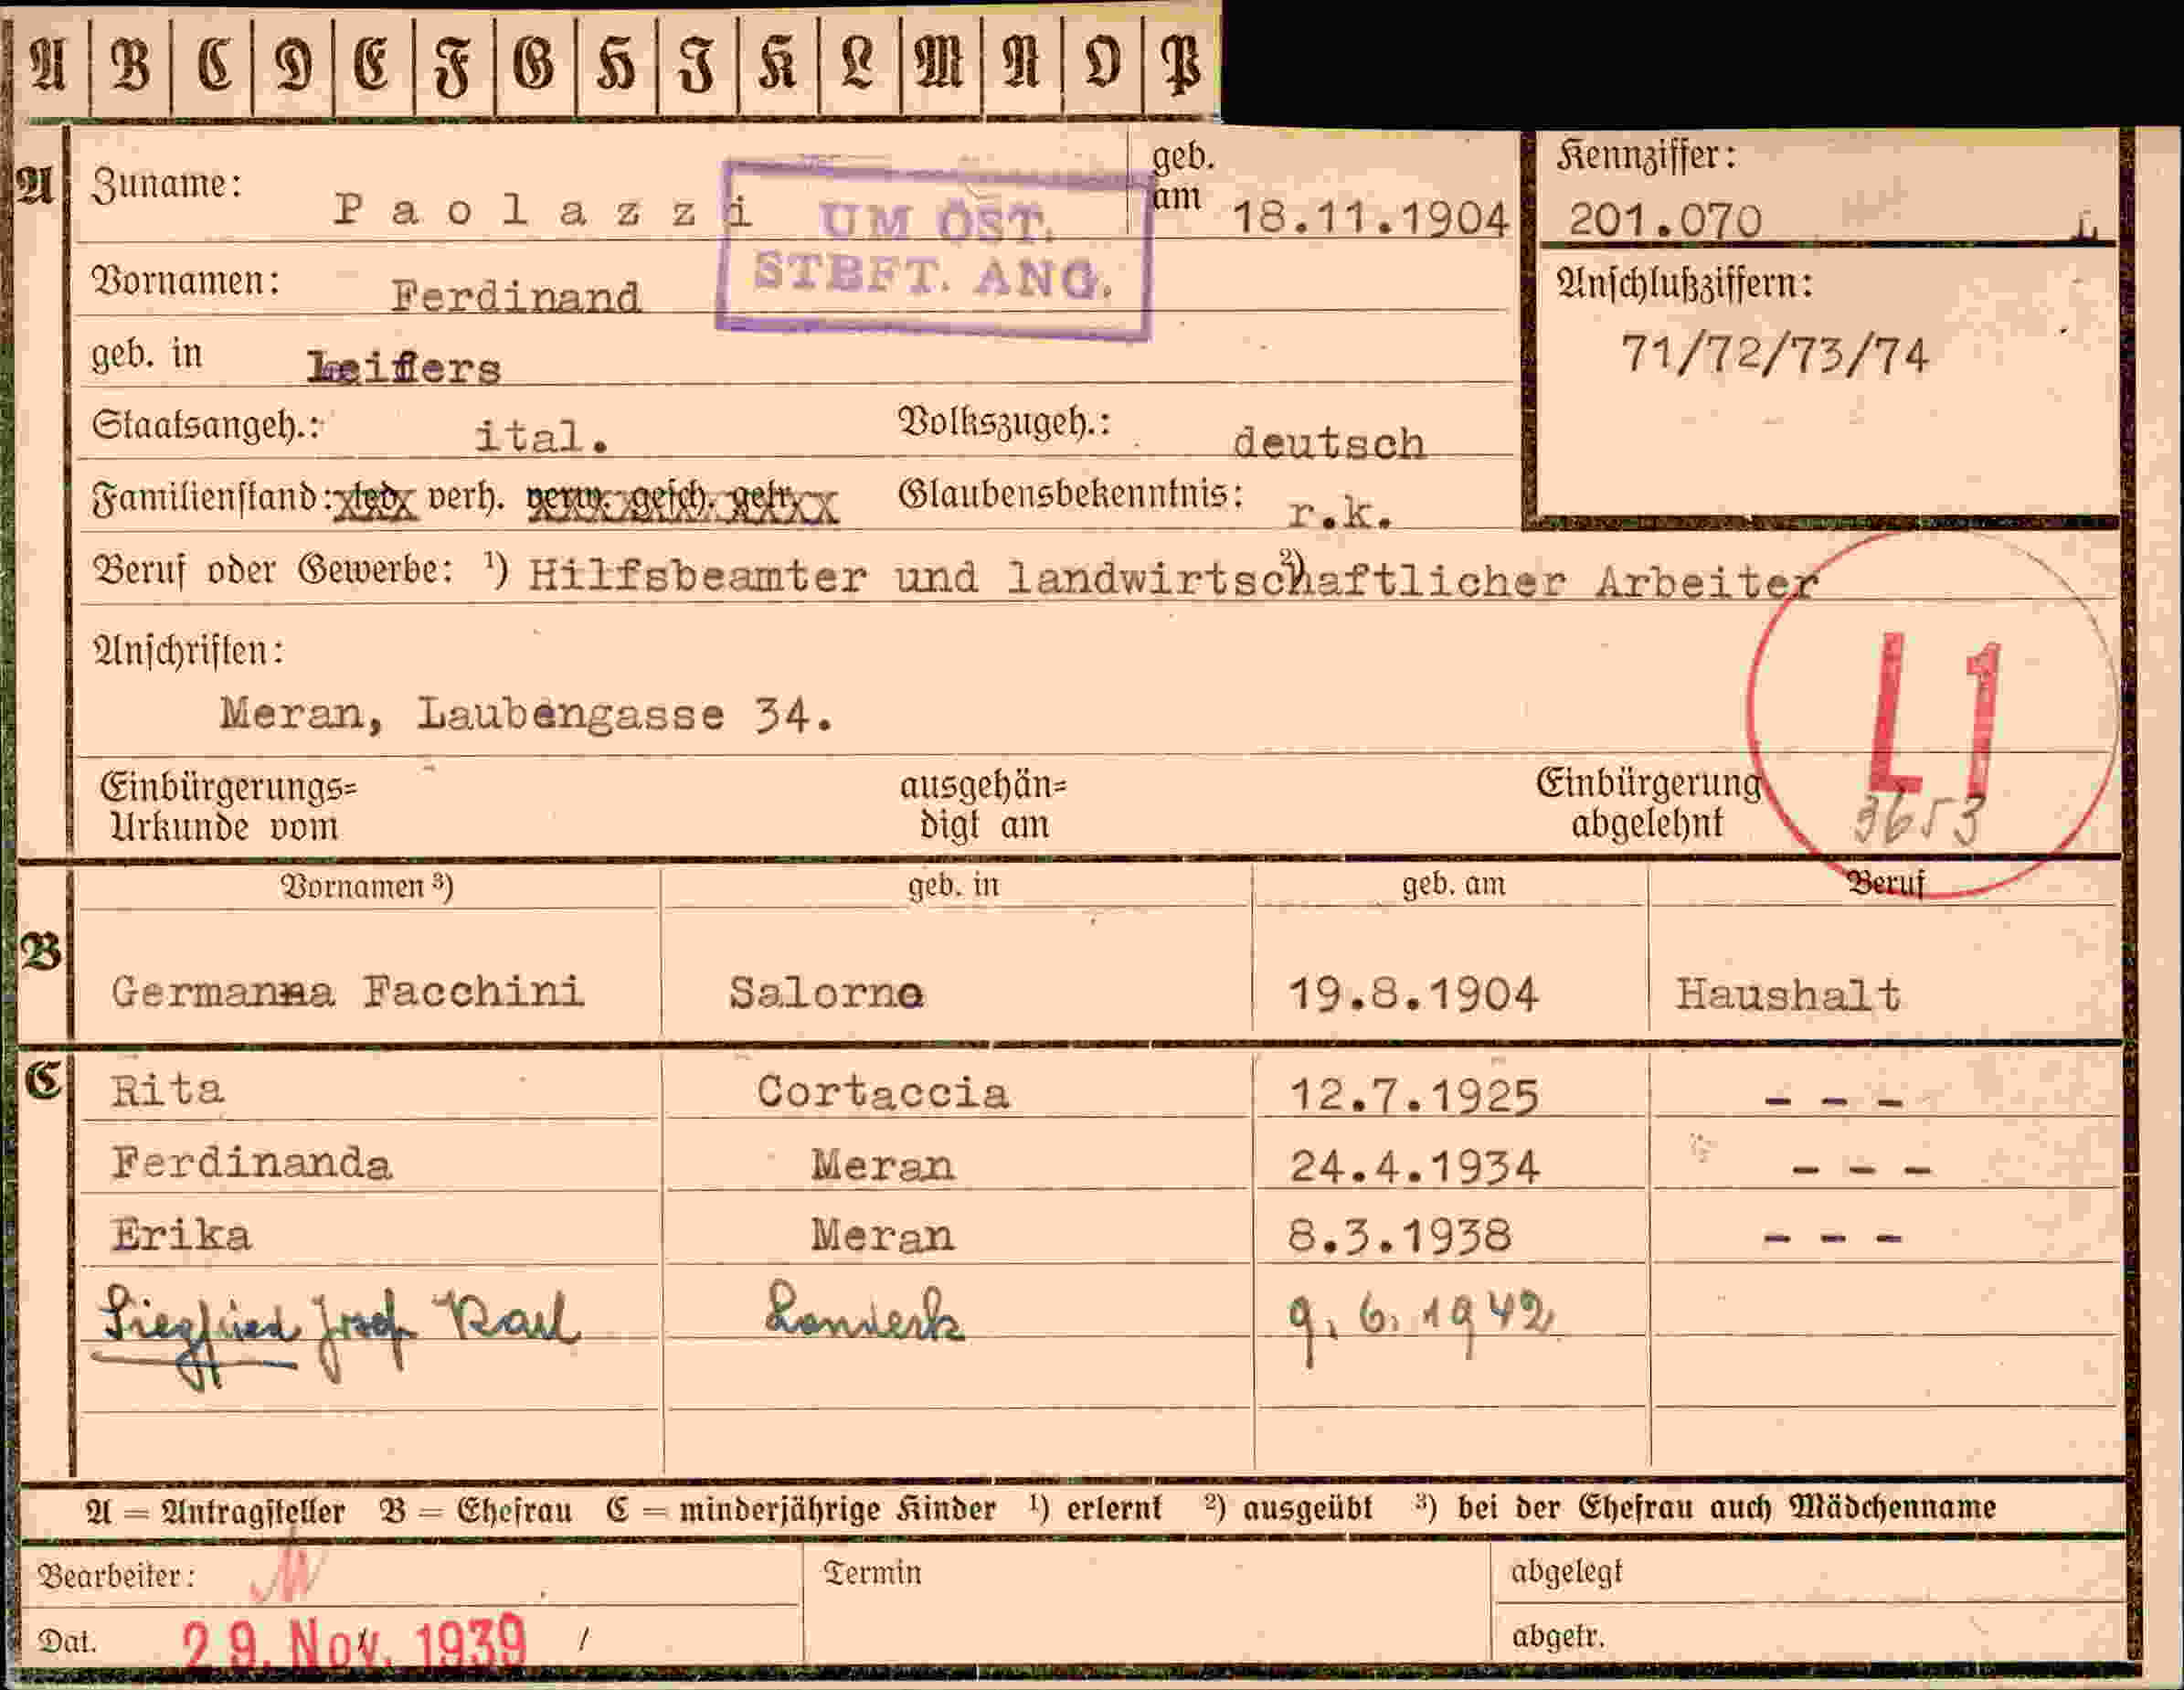 A B C D E F G H I K L M N O P
A Zuname: Paolazzi geb. am 18.11.1904 Kennziffer: 201.070
UM ÖST. STBFT. ANG.
Vornamen: Ferdinand Anschlußziffern:
geb. in Leifers 71/72/73/74
Staatsangeh.: ital. Volkszugeh.: deutsch
Familienstand: led. verh. verw. gesch. getr. Glaubensbekenntnis: r.k.
Beruf oder Gewerbe: ¹) Hilfsbeamter und ²) landwirtschaftlicher Arbeiter
Anschriften:
L1
Meran, Laubengasse 34.
Einbürgerungs= ausgehän= Einbürgerung
Urkunde vom digt am abgelehnt 3653
Vornamen ³) geb. in geb. am Beruf
B Germana Facchini Salorno 19.8.1904 Haushalt
C Rita Cortaccia 12.7.1925 - - -
Ferdinanda Meran 24.4.1934 - - -
Erika Meran 8.3.1938 - - -
Siegfried Josef Karl Landeck 9.6.1942
A = Antragsteller B = Ehefrau C = minderjährige Kinder ¹) erlernt ²) ausgeübt ³) bei der Ehefrau auch Mädchenname
Bearbeiter: Termin abgelegt
Dat. 29. Nov. 1939 / abgetr.